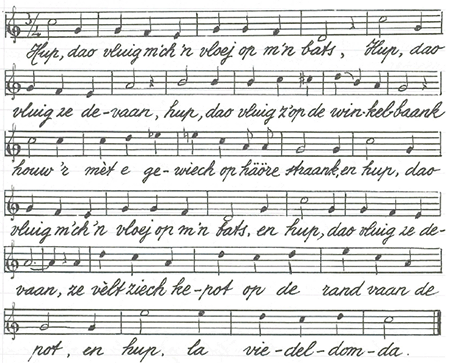 Hup, dao vluig m'ch 'n vloej op m'n bats, Hup, dao
vluig ze de-vaan, hup, dao vluig z'op de win-kel-baank
houw 'r mèt e ge-wiech op häöre straank, en hup, dao
vluig m'ch 'n vloej op m'n bats, en hup, dao vluig ze de-
vaan, ze vèlt ziech ke-pot op de rand vaan de
pot, en hup, la vie-del-dom-da.